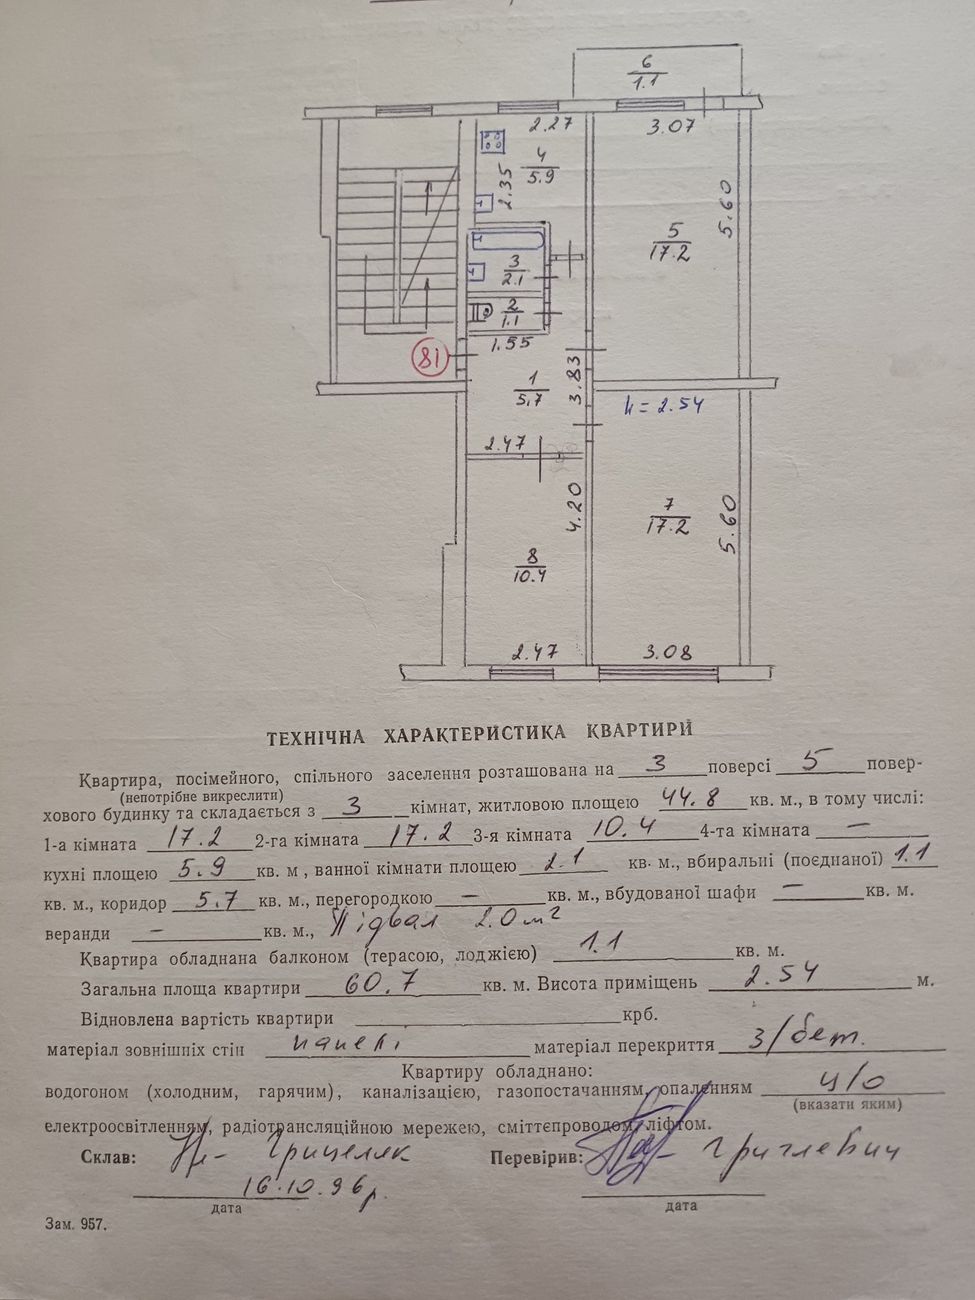 6
1.1
2.27
3.07
4
5.9
2.35
5.60
5
17.2
3
2.1
2
1.1
1.55
81
1
5.7
3.83
h = 2.54
2.47
4.20
7
17.2
5.60
8
10.4
2.47
3.08
ТЕХНІЧНА ХАРАКТЕРИСТИКА КВАРТИРИ
Квартира, посімейного, спільного заселення розташована на 3 поверсі 5 повер-
(непотрібне викреслити)
хового будинку та складається з 3 кімнат, житловою площею 44.8 кв. м., в тому числі:
1-а кімната 17.2 2-га кімната 17.2 3-я кімната 10.4 4-та кімната —
кухні площею 5.9 кв. м , ванної кімнати площею 2.1 кв. м., вбиральні (поєднаної) 1.1
кв. м., коридор 5.7 кв. м., перегородкою — кв. м., вбудованої шафи — кв. м.
веранди — кв. м., Підвал 2.0 м²
Квартира обладнана балконом (терасою, лоджією) 1.1 кв. м.
Загальна площа квартири 60.7 кв. м. Висота приміщень 2.54 м.
Відновлена вартість квартири крб.
матеріал зовнішніх стін панелі матеріал перекриття з/бет.
Квартиру обладнано:
водогоном (холодним, гарячим), каналізацією, газопостачанням, опаленням ц/о
(вказати яким)
електроосвітленням, радіотрансляційною мережею, сміттєпроводом, ліфтом.
Склав: Грицеляк Перевірив: Григлевич
16.10.96р.
дата дата
Зам. 957.